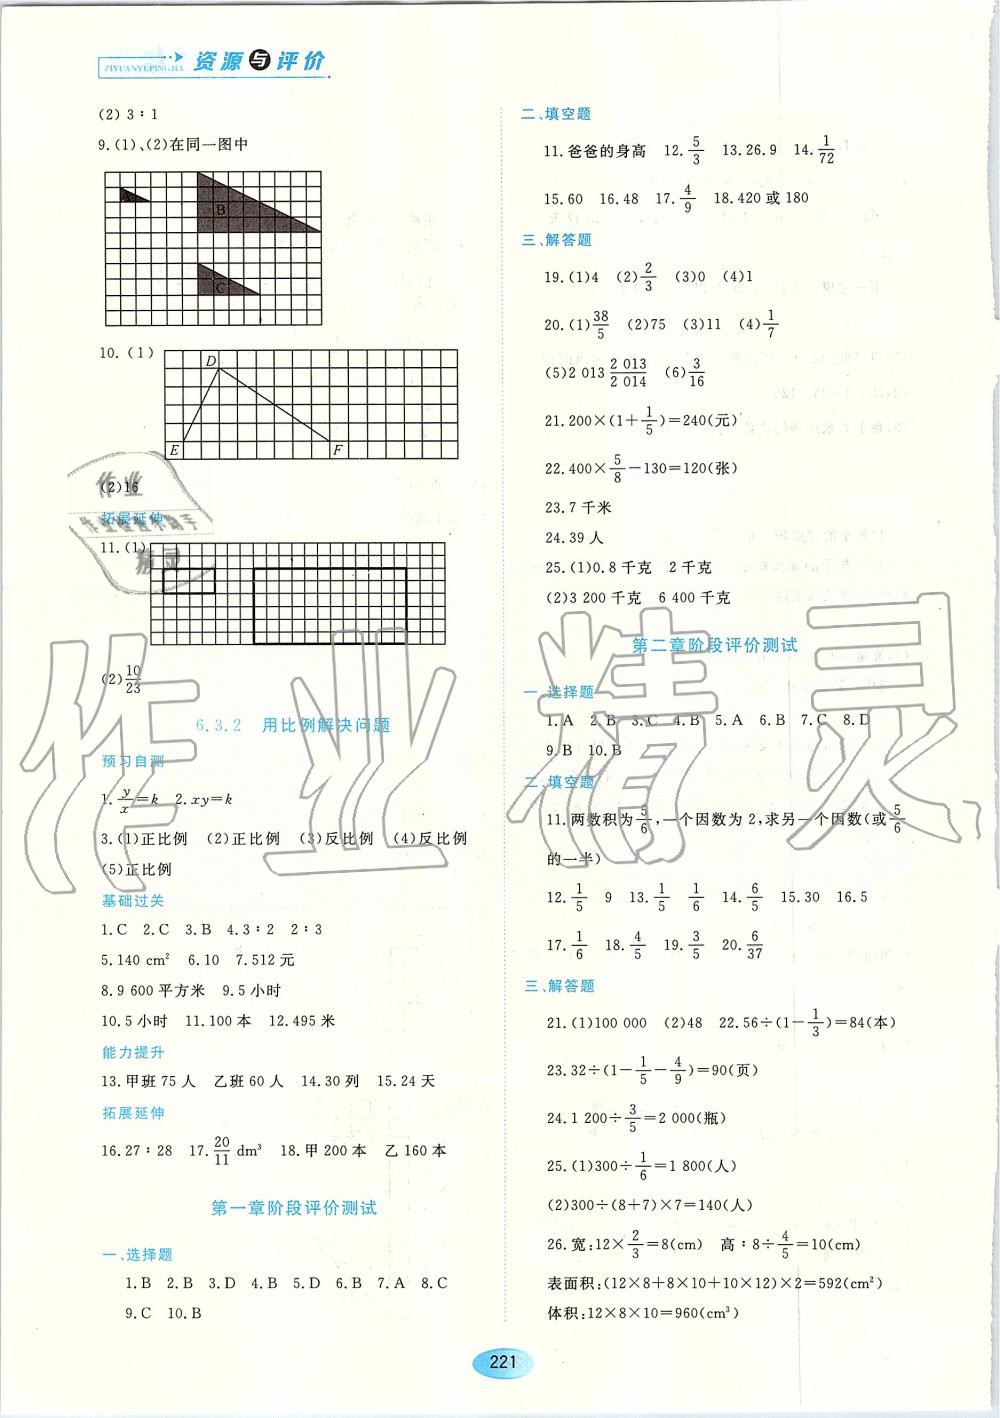 资源与评价
ZIYUANYUPINGJIA
(2) 3∶1
9.(1)、(2)在同一图中
A
B
C
10.(1)
D
E
F
(2)16
拓展延伸
11.(1)
(2)10/23
6.3.2 用比例解决问题
预习自测
1. y/x=k 2. xy=k
3.(1)正比例 (2)正比例 (3)反比例 (4)反比例
(5)正比例
基础过关
1.C 2.C 3.B 4.3∶2 2∶3
5.140 cm² 6.10 7.512元
8.9 600平方米 9.5小时
10.5小时 11.100本 12.495米
能力提升
13.甲班75人 乙班60人 14.30列 15.24天
拓展延伸
16.27∶28 17. 20/11 dm³ 18.甲200本 乙160本
第一章阶段评价测试
一、选择题
1.B 2.B 3.D 4.B 5.D 6.B 7.A 8.C
9.C 10.B
二、填空题
11.爸爸的身高 12. 5/3 13.26.9 14. 1/72
15.60 16.48 17. 4/9 18.420或180
三、解答题
19.(1)4 (2)2/3 (3)0 (4)1
20.(1)38/5 (2)75 (3)11 (4)1/7
(5)2 013 2 013/2 014 (6)3/16
21.200×(1+1/5)=240(元)
22.400×5/8-130=120(张)
23.7千米
24.39人
25.(1)0.8千克 2千克
(2)3 200千克 6 400千克
第二章阶段评价测试
一、选择题
1.A 2.B 3.C 4.B 5.A 6.B 7.C 8.D
9.B 10.B
二、填空题
11.两数积为5/6,一个因数为2,求另一个因数(或5/6
的一半)
12. 1/5 9 13. 1/5 1/6 14. 6/5 15.30 16.5
17. 1/6 18. 4/5 19. 3/5 20. 6/37
三、解答题
21.(1)100 000 (2)48 22.56÷(1-1/3)=84(本)
23.32÷(1-1/5-4/9)=90(页)
24.1 200÷3/5=2 000(瓶)
25.(1)300÷1/6=1 800(人)
(2)300÷(8+7)×7=140(人)
26.宽:12×2/3=8(cm) 高:8÷4/5=10(cm)
表面积:(12×8+8×10+10×12)×2=592(cm²)
体积:12×8×10=960(cm³)
221
作业精灵